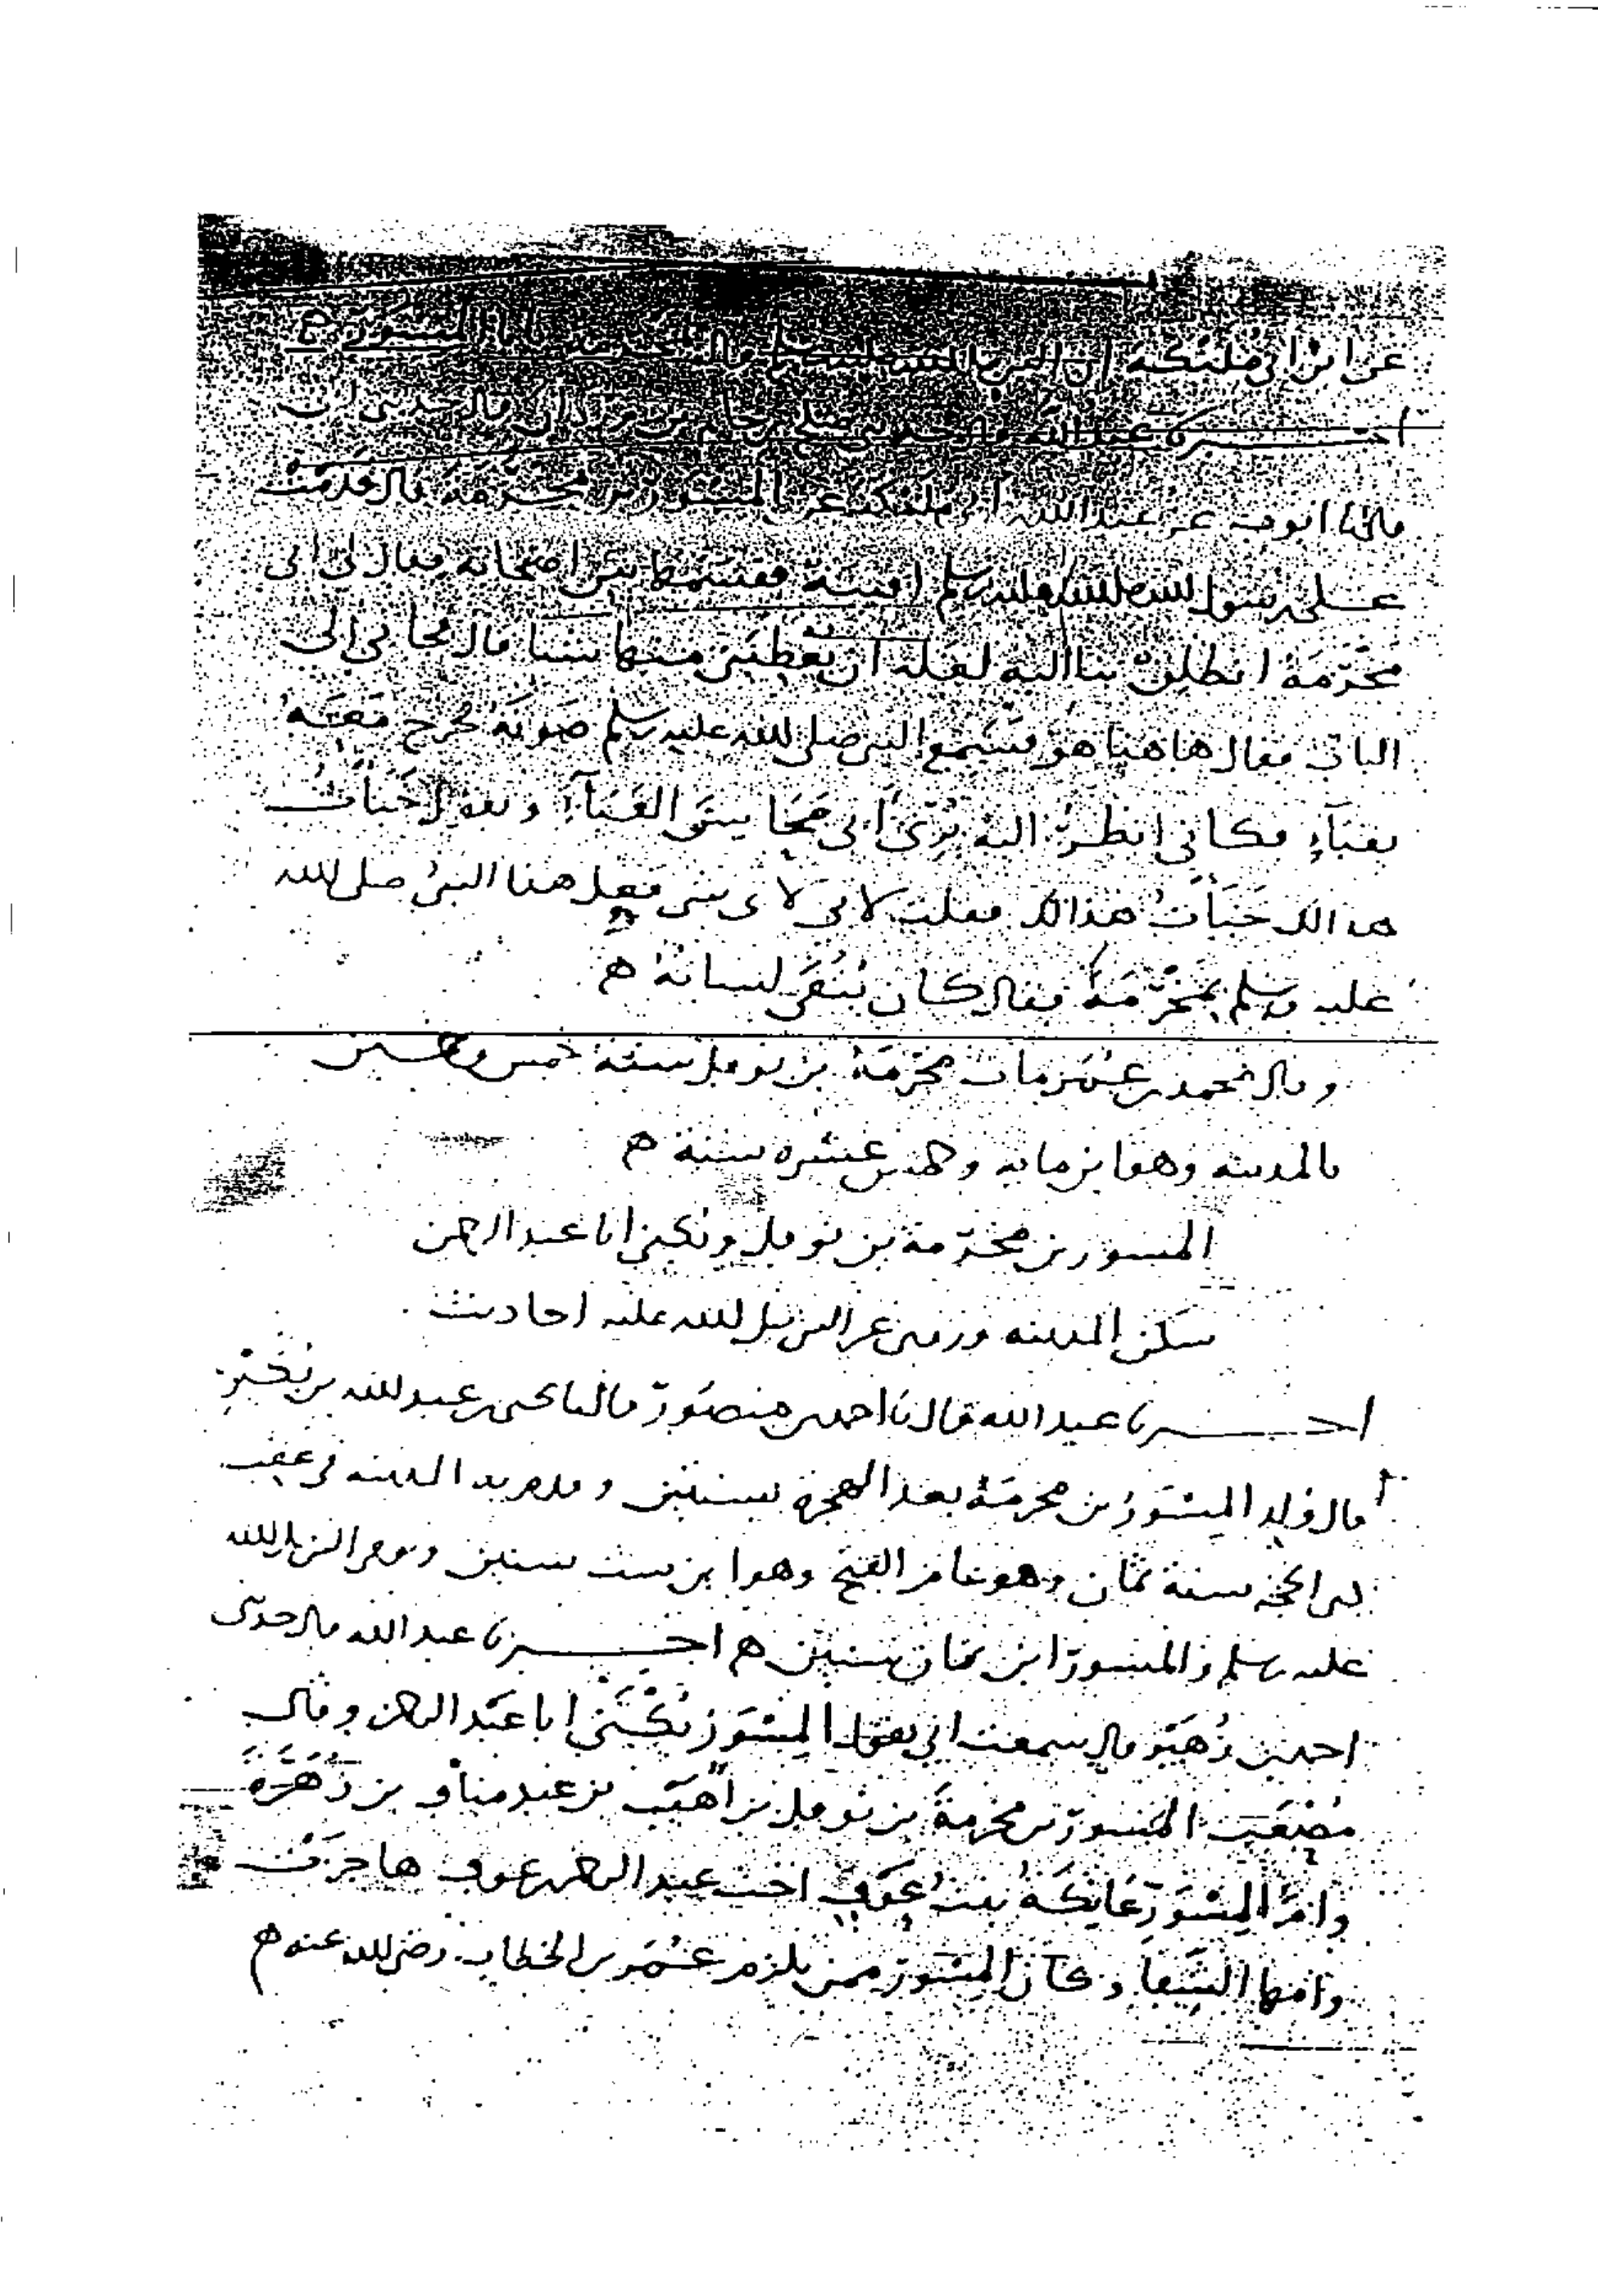 عن ابن ابي مليكة ان النبي صلى الله عليه وسلم قال المسور ه
اخبرنا عبد الله قال حدثني صلح بن حاتم بن وردان قال حدثني ابي
قال نا ايوب عن عبد الله بن ابي مليكة عن المسور بن مخرمة قال قدمت
على رسول الله صلى الله عليه وسلم اقبية فقسمها بين اصحابه فقال لي ابي
مخرمة انطلق بنا اليه لعله ان يعطينا منها شيئا قال فجا ابي الى
الباب فقال ها هنا هو فسمع النبي صلى الله عليه وسلم صوته فخرج معه
بقباء فكاني انظر اليه يري ابي محاسن القباء ويقول خبأت
هذا لك خبأت هذا لك فقلت لابي لاي شي فعل هذا النبي صلى الله
عليه وسلم بمخرمة فقال كان يتقى لسانه ه
وقال محمد بن عمر مات مخرمة بن نوفل سنة خمس وخمسين
بالمدينه وهو ابن مايه وخمس عشره سنة ه
المسور بن مخرمة بن نوفل ويكنى ابا عبد الرحمن
سكن المدينه وروى عن النبي صلى الله عليه احاديث
اخبرنا عبد الله قال نا احمد بن منصور قال نا يحيى بن عبد الله بن بكير
قال ولد المسور بن مخرمة بعد الهجرة بسنتين وقدم به المدينه في عقب
ذي الحجة سنة ثمان وهو عام الفتح وهو ابن ست سنين وتوفي النبي صلى الله
عليه وسلم والمسور ابن ثمان سنين ه اخبرنا عبد الله قال حدثني
احمد بن زهير قال سمعت ابي يقول المسور يكنى ابا عبد الرحمن وقال
مصعب المسور بن مخرمة بن نوفل بن اهيب بن عبد مناف بن زهرة
وام المسور عاتكة بنت عوف اخت عبد الرحمن بن عوف هاجرت
وامها الشفا وكان المسور ممن يلزم عمر بن الخطاب رضي الله عنه ه